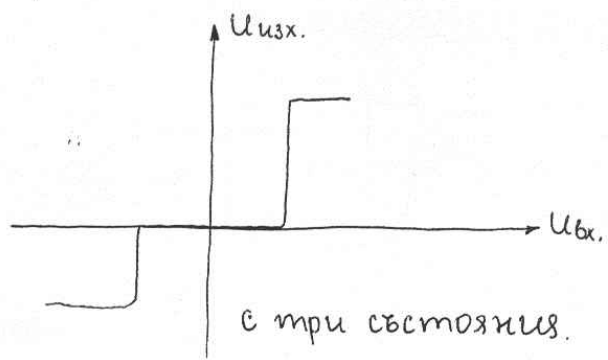 Uизх.
Uвх.
с три състояния.